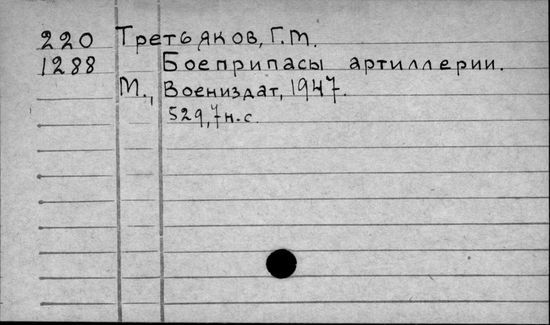 220 Третьяков, Г.М.
1288 Боеприпасы артиллерии.
М., Воениздат, 1947.
529,7н.с.